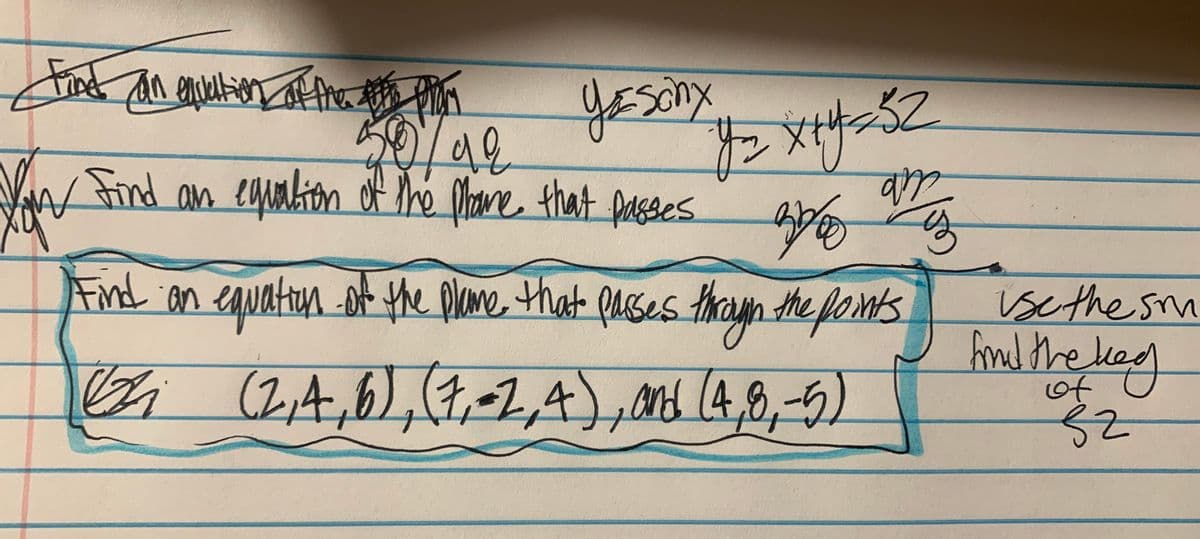 Find an equation of the
y=sinx
y= x+y=52
50/ae
Find an equation of the plane that passes
Find an equation of the plane that passes through the points
(2,4,6), (7,-2,4), and (4,8,-5)
use the sin
find the key
of
52